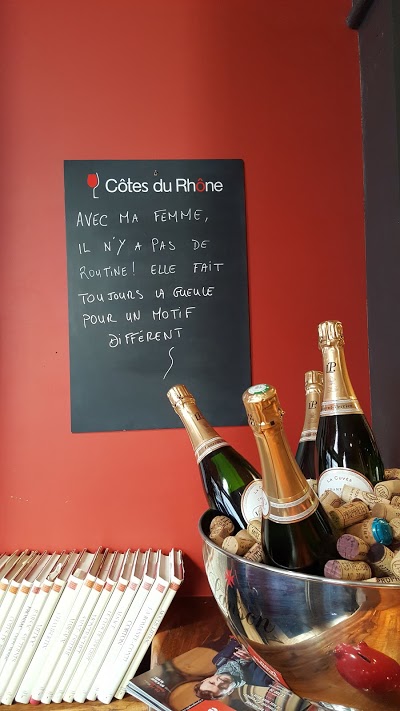 Côtes du Rhône
AVEC MA FEMME,
IL N'Y A PAS DE
ROUTINE! ELLE FAIT
TOUJOURS LA GUEULE
POUR UN MOTIF
DIFFÉRENT
LP
LA CUVÉE